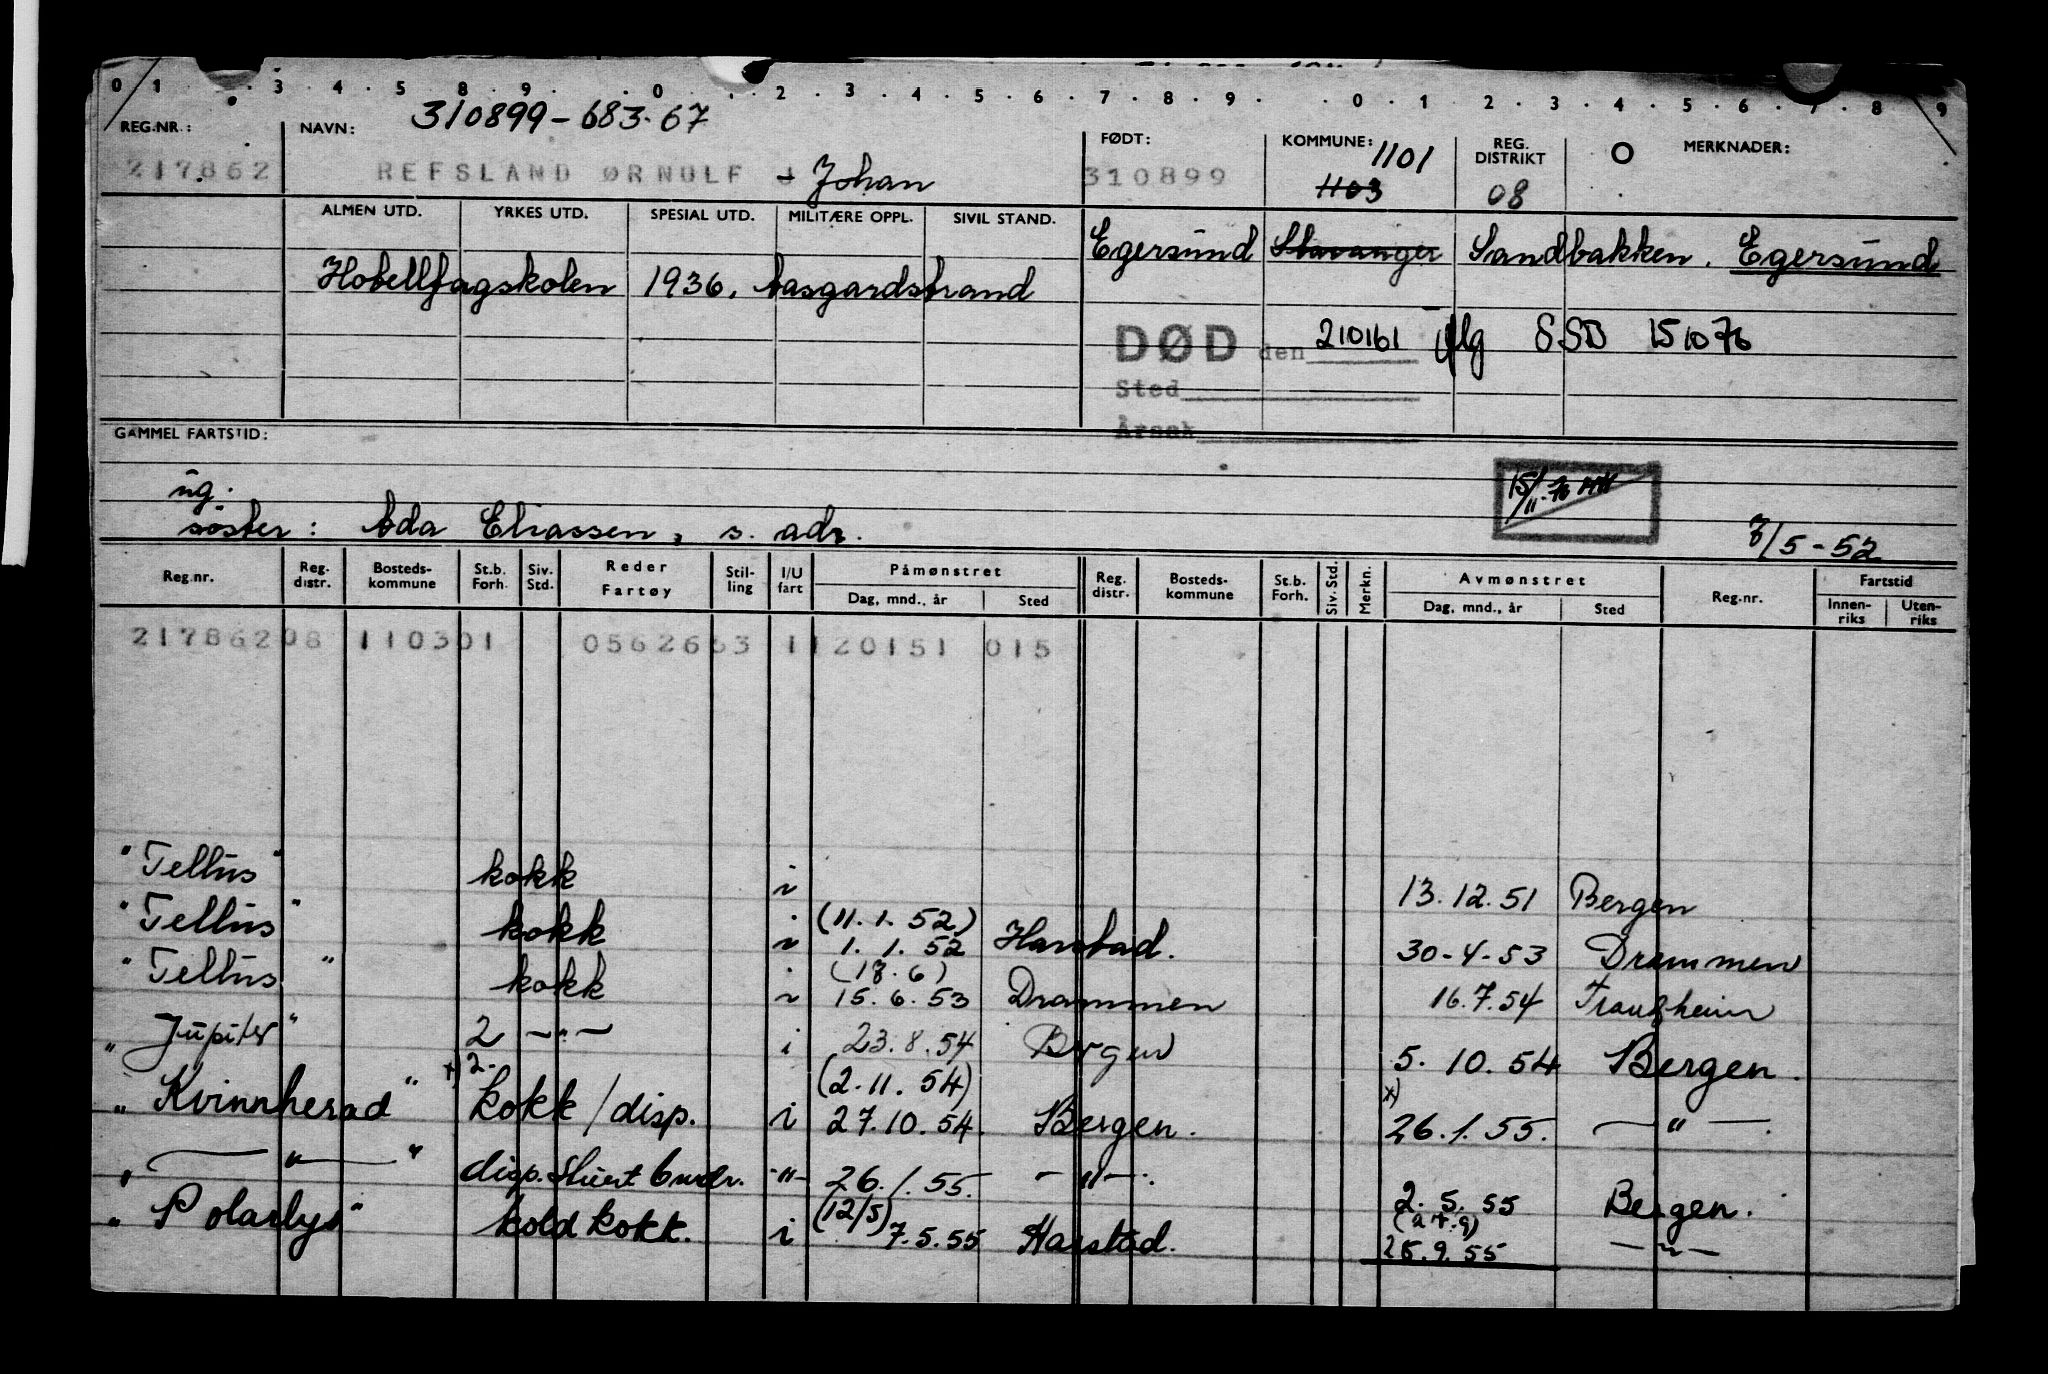 0 1 . 3 . 4 . 5 8 . 9 . . 0 . . 2 . 3 . 4 . 5 . 6 . 7 . 8 . 9 . . 0 . 1 . 2 . 3 . 4 . 5 . 6 . 7 . 8 . 9
310899-683.67
REG.NR.: NAVN: FØDT: KOMMUNE: 1101 REG. DISTRIKT O MERKNADER:
217862 REFSLAND ØRNULF J Johan 310899 1103 08
ALMEN UTD. YRKES UTD. SPESIAL UTD. MILITÆRE OPPL. SIVIL STAND.
Egersund Stavanger Sandbakken. Egersund
Hotellfagskolen 1936, Aasgardstrand
DØD den 210161 iflg SSB 151076
Sted
Årsak
GAMMEL FARTSTID:
ug.
15/11.76
søster: Ada Eliassen, s. adr.
7/5-52
Reg.nr. Reg. distr. Bosteds-kommune St.b. Forh. Siv. Std. Reder Fartøy Stil-ling I/U fart Påmønstret Dag, mnd., år Sted Reg. distr. Bosteds-kommune St.b. Forh. Siv. Std. Merkn. Avmønstret Dag, mnd., år Sted Reg.nr. Fartstid Innen-riks Uten-riks
21786208 110301 0562663 1120151 015
"Tellus" kokk i 13.12.51 Bergen
(11.1.52)
"Tellus" kokk i 1.1.52 Harstad. 30-4-53 Drammen
(18.6)
"Tellus" kokk i 15.6.53 Drammen 16.7.54 Trondheim
"Jupiter" 2 -"- i 23.8.54 Bergen 5.10.54 Bergen.
x) 2. (2.11.54) x)
"Kvinnherad" kokk/disp. i 27.10.54. Bergen. 26.1.55. -"-.
" -"- " disp. Stuert -"- 26.1.55. -"-. 2.5.55 Bergen.
(12/5) (24.9)
"Polarlys" koldkokk. i 7.5.55 Harstad. 25.9.55 -"-